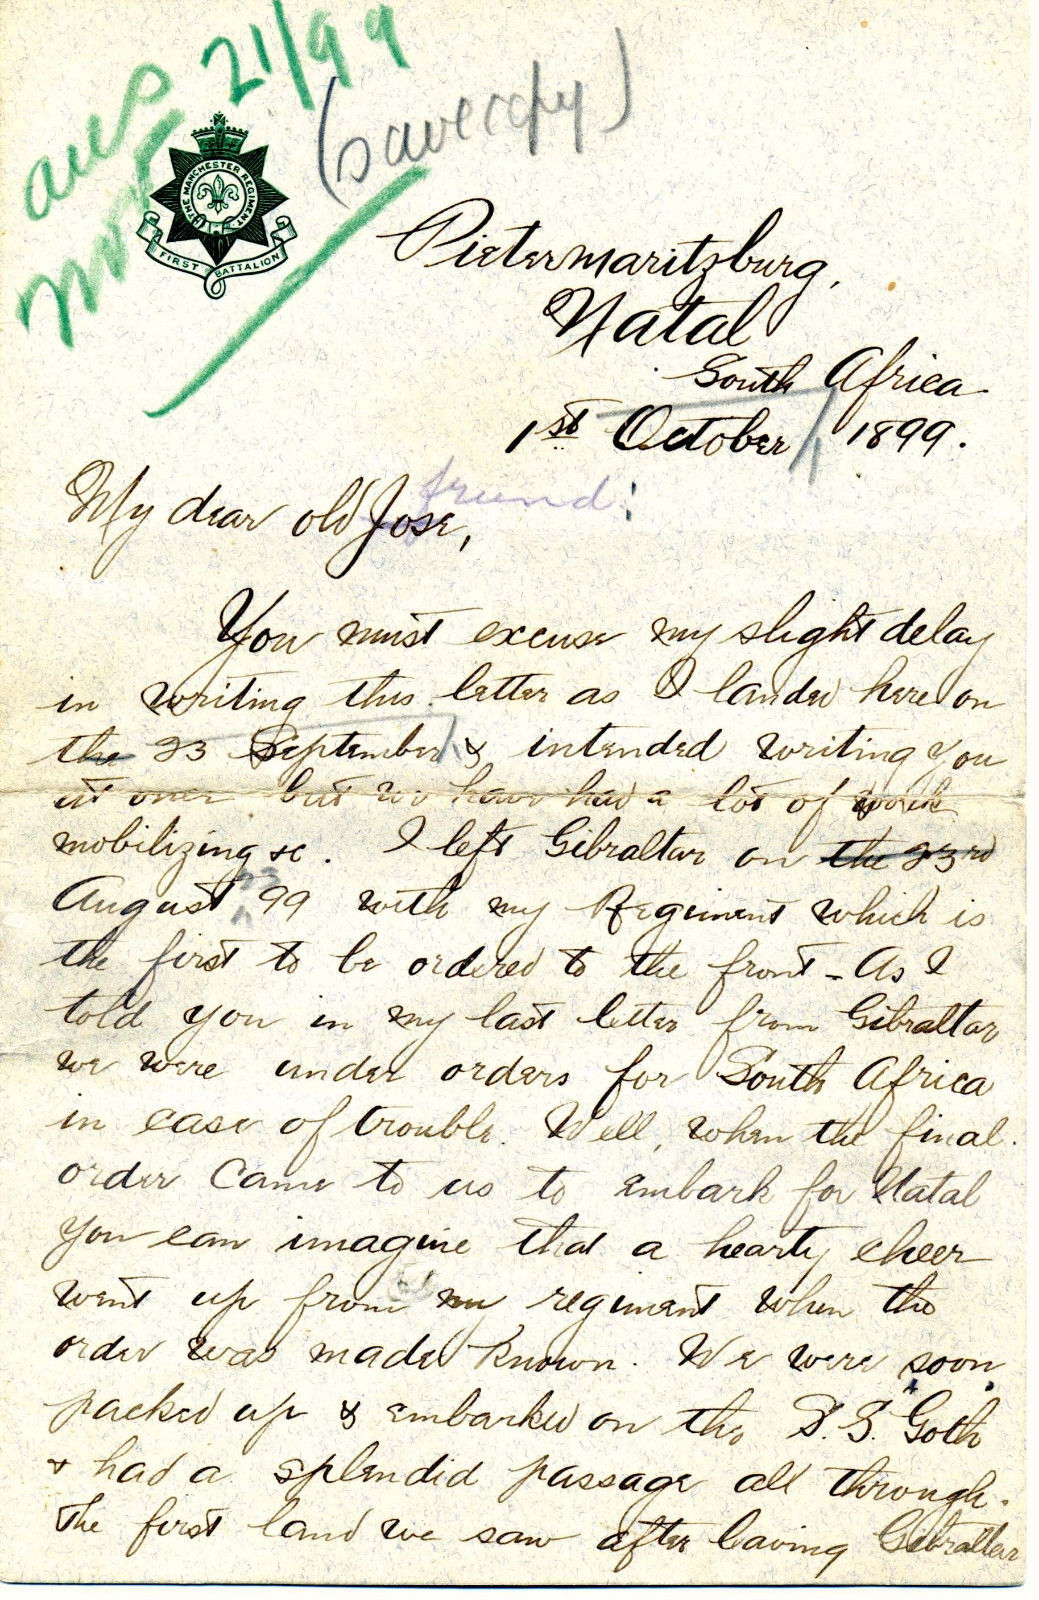 ans 21/99
(save copy)
THE MANCHESTER REGIMENT
FIRST BATTALION
Pietermaritzburg,
Natal
South Africa
1st October 1899.
friend!
My dear old Jose,
You must excuse my slight delay
in writing this letter as I landed here on
the 23 September & intended writing you
at once but we have had a lot of work
mobilizing &c. I left Gibraltar on the 23rd
August 23 99 with my Regiment which is
the first to be ordered to the front - As I
told you in my last letter from Gibraltar
we were under orders for South Africa
in case of trouble. Well, when the final
order came to us to embark for Natal
you can imagine that a hearty cheer
went up from my regiment when the
order was made known. We were soon
packed up & embarked on the S.S. "Goth"
& had a splendid passage all through.
The first land we saw after leaving Gibraltar